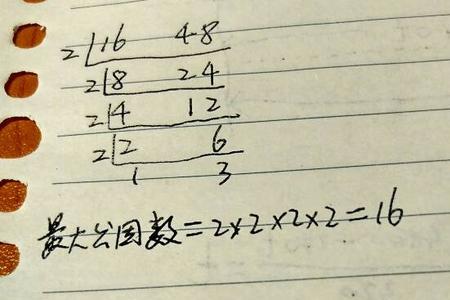 2 16 48
2 8 24
2 4 12
2 2 6
1 3
最大公因数=2×2×2×2=16